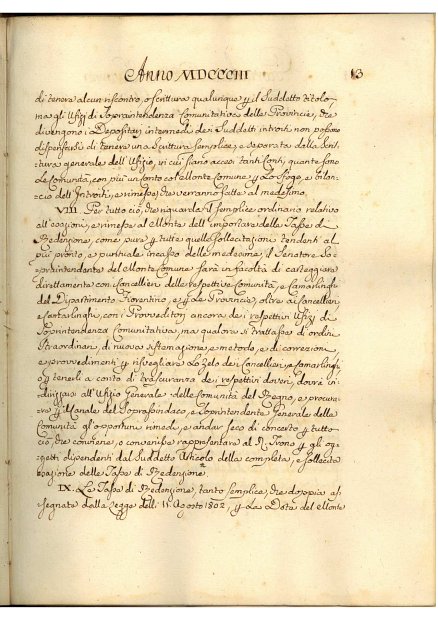 Anno MDCCCIII 13
di tenera alcun riscontro, o scrittura qualunque p il Suddetto titolo,
ma gli Ufizj di Soprintendenza Comunitativa delle Provincie, che
divengono i Depositarj intermedi dei Suddetti introiti non possono
dispensarsi di tenere una Scrittura semplice, e separata dalla Scrit-
tura generale dell'Ufizio, in cui siano accesi tanti Conti, quante sono
le Comunità, con più un Conto col Monte Comune p lo sfogo, e bilan-
cio dell'Introiti, e rimesse, che verranno fatte al medesimo.
VIII. Per tutto ciò, che riguarda il semplice ordinario relativo
all'esazioni, e rimesse al Monte dell'importare della Tassa di
Redenzione, come pure p tutte quelle sollecitazioni tendenti al
più pronto, e puntuale incasso delle medesime, il Senatore So-
printendente del Monte Comune sarà in facoltà di carteggiare
direttamente con Cancellieri delle respettive Comunità, e Camarlinghi
del Dipartimento Fiorentino, e p le Provincie, oltre ai Cancellieri,
e Camarlinghi, con i Provveditori ancora dei respettivi Ufizj di
Soprintendenza Comunitativa, ma qualora si trattasse di ordini
straordinarj, di nuova sistemazione, e metodo, e di correzioni
e provvedimenti p risvegliare lo zelo dei Cancellieri, e Camarlinghi
o tenerli a conto di trascuranza dei respettivi doveri, dovrà in-
dirizzarsi all'Ufizio Generale delle Comunità del Regno, e procura-
re p il canale del Soprasindaco, e Soprintendente Generale delle
Comunità gl'opportuni rimedj, e andar seco di concerto p tutto
ciò, che conviene, o convenisse rappresentare al R. Trono p gli og-
getti dipendenti dal Suddetto Articolo della completa, e sollecita
esazione delle Tasse di Redenzione.
IX. La Tassa di Redenzione, tanto semplice, che doppia as-
segnata dalla Legge dell' 11. Agosto 1802, p la Dote del Monte